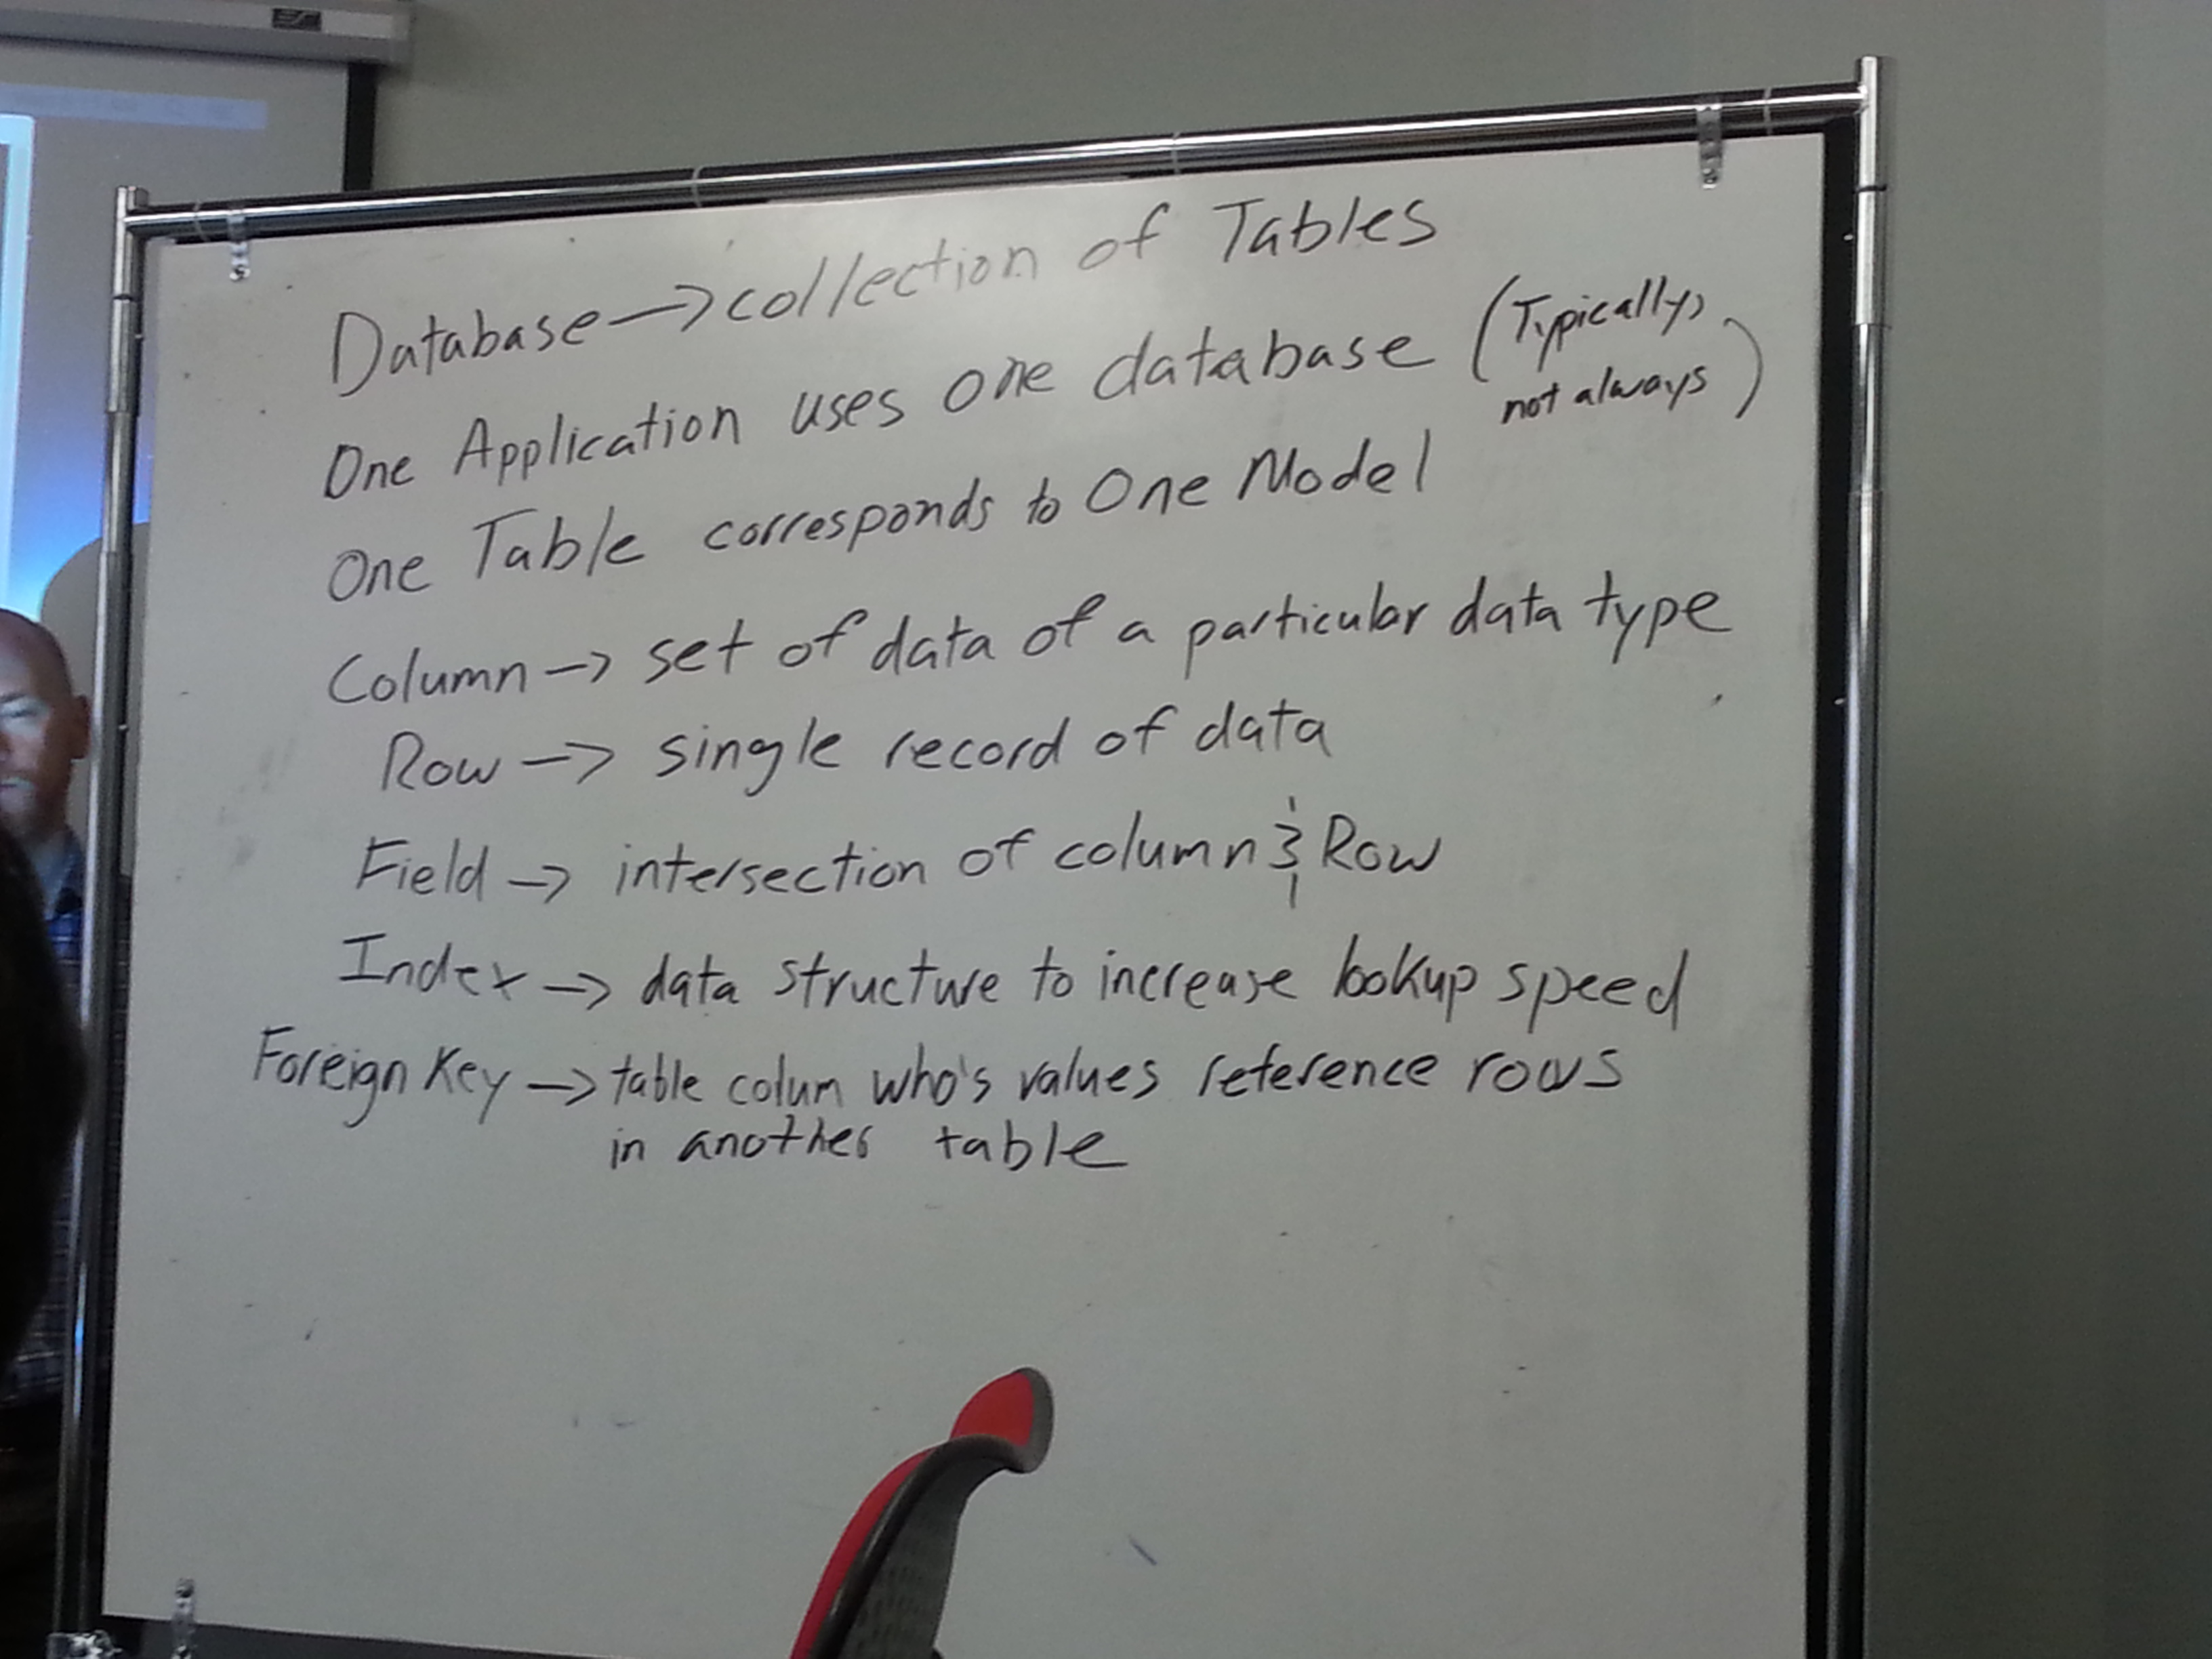 Database → collection of Tables
One Application uses one database (Typically, not always)
One Table corresponds to One Model
Column → set of data of a particular data type
Row → single record of data
Field → intersection of column & Row
Index → data structure to increase lookup speed
Foreign Key → table colum who's values reference rows
in another table